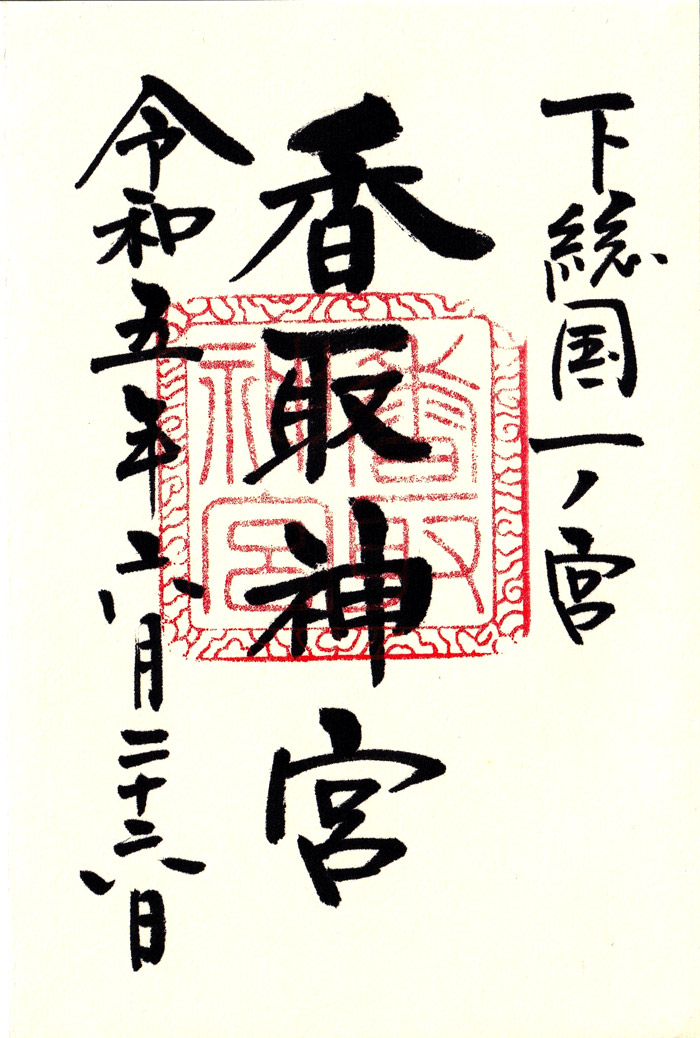 下総国一ノ宮
香取神宮
令和五年六月二十六日
香取神宮